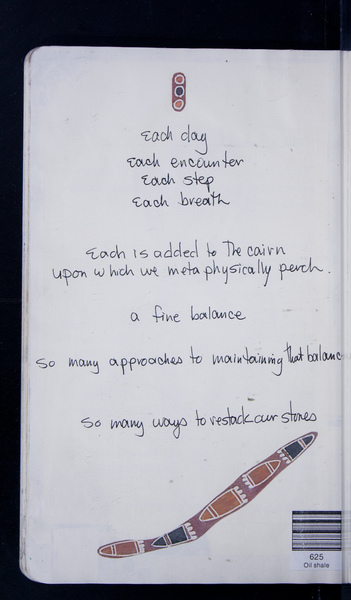 Each day
Each encounter
Each step
Each breath
Each is added to The cairn
upon which we metaphysically perch.
a fine balance
So many approaches to maintaining that balanc
So many ways to restack our stones
625
Oil shale